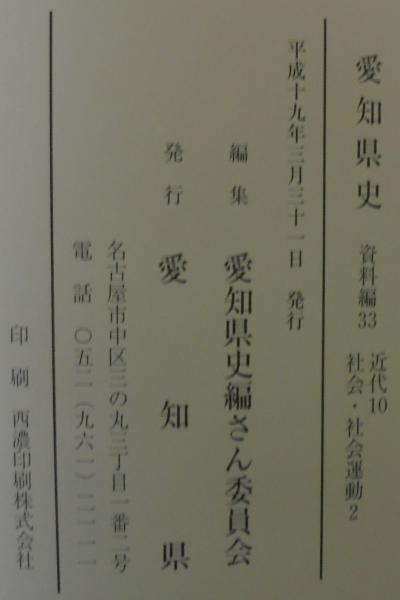 愛知県史 資料編33 近代10
社会・社会運動2
平成十九年三月三十一日 発行
編集 愛知県史編さん委員会
発行 愛知県
名古屋市中区三の丸三丁目一番二号
電話 〇五二(九六一)二一一一
印刷 西濃印刷株式会社